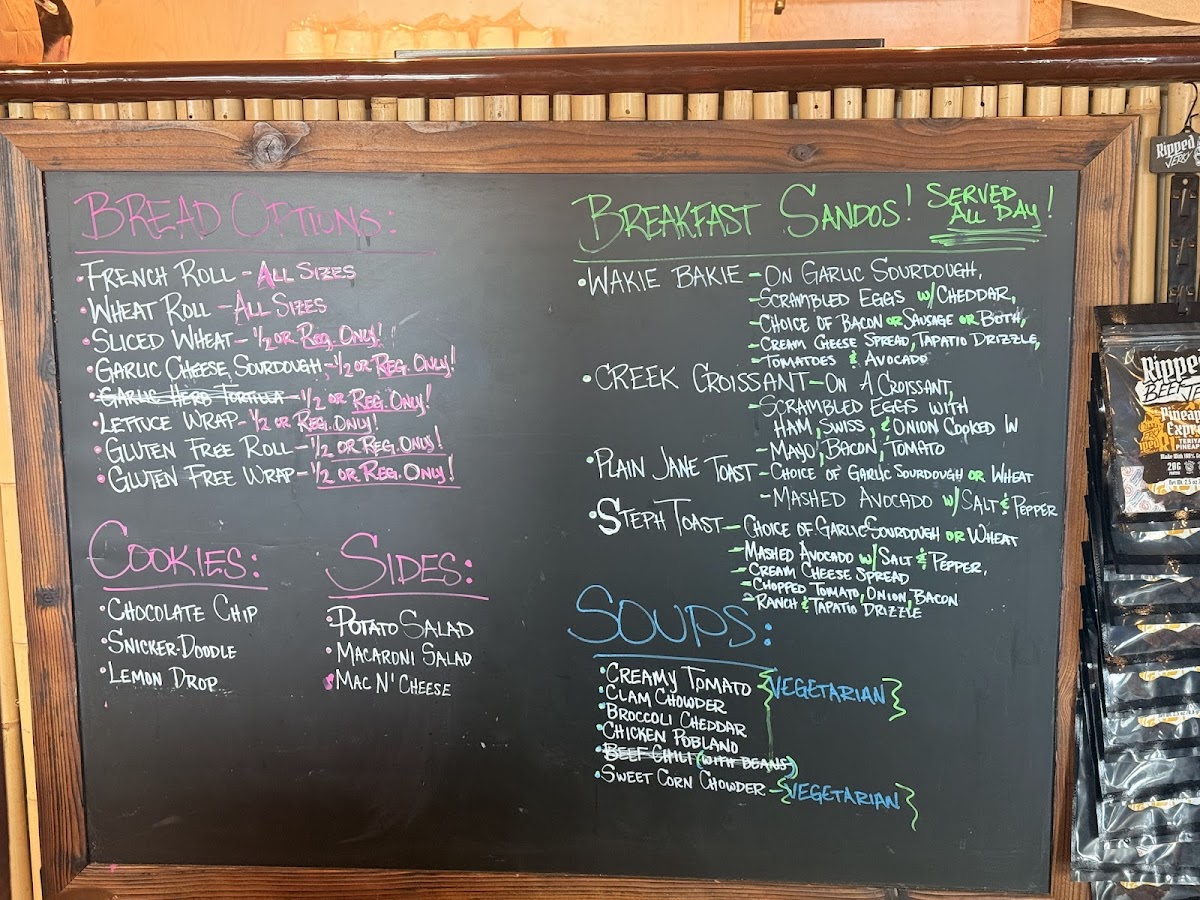 BREAD OPTIONS:
•FRENCH ROLL - ALL SIZES
•WHEAT ROLL - ALL SIZES
•SLICED WHEAT - 1/2 OR REG. ONLY!
•GARLIC CHEESE SOURDOUGH - 1/2 OR REG. ONLY!
•GARLIC HERB TORTILLA - 1/2 OR REG. ONLY!
•LETTUCE WRAP - 1/2 OR REG. ONLY!
•GLUTEN FREE ROLL - 1/2 OR REG. ONLY!
•GLUTEN FREE WRAP - 1/2 OR REG. ONLY!
COOKIES:
•CHOCOLATE CHIP
•SNICKER-DOODLE
•LEMON DROP
SIDES:
•POTATO SALAD
•MACARONI SALAD
•MAC N' CHEESE
BREAKFAST SANDOS! SERVED ALL DAY!
•WAKIE BAKIE - ON GARLIC SOURDOUGH,
-SCRAMBLED EGGS W/ CHEDDAR,
-CHOICE OF BACON OR SAUSAGE OR BOTH,
-CREAM CHEESE SPREAD, TAPATIO DRIZZLE,
-TOMATOES & AVOCADO
•CREEK CROISSANT - ON A CROISSANT,
-SCRAMBLED EGGS WITH
HAM, SWISS, & ONION COOKED IN
-MAYO, BACON, TOMATO
•PLAIN JANE TOAST - CHOICE OF GARLIC SOURDOUGH OR WHEAT
-MASHED AVOCADO W/ SALT & PEPPER
•STEPH TOAST - CHOICE OF GARLIC SOURDOUGH OR WHEAT
-MASHED AVOCADO W/ SALT & PEPPER,
-CREAM CHEESE SPREAD
-CHOPPED TOMATO, ONION, BACON
-RANCH & TAPATIO DRIZZLE
SOUPS:
•CREAMY TOMATO {VEGETARIAN}
•CLAM CHOWDER
•BROCCOLI CHEDDAR
•CHICKEN POBLANO
•BEEF CHILI (WITH BEANS)
•SWEET CORN CHOWDER - {VEGETARIAN}
Ripped
JERKY
Ripped
BEEF JE
Pineap
Expre